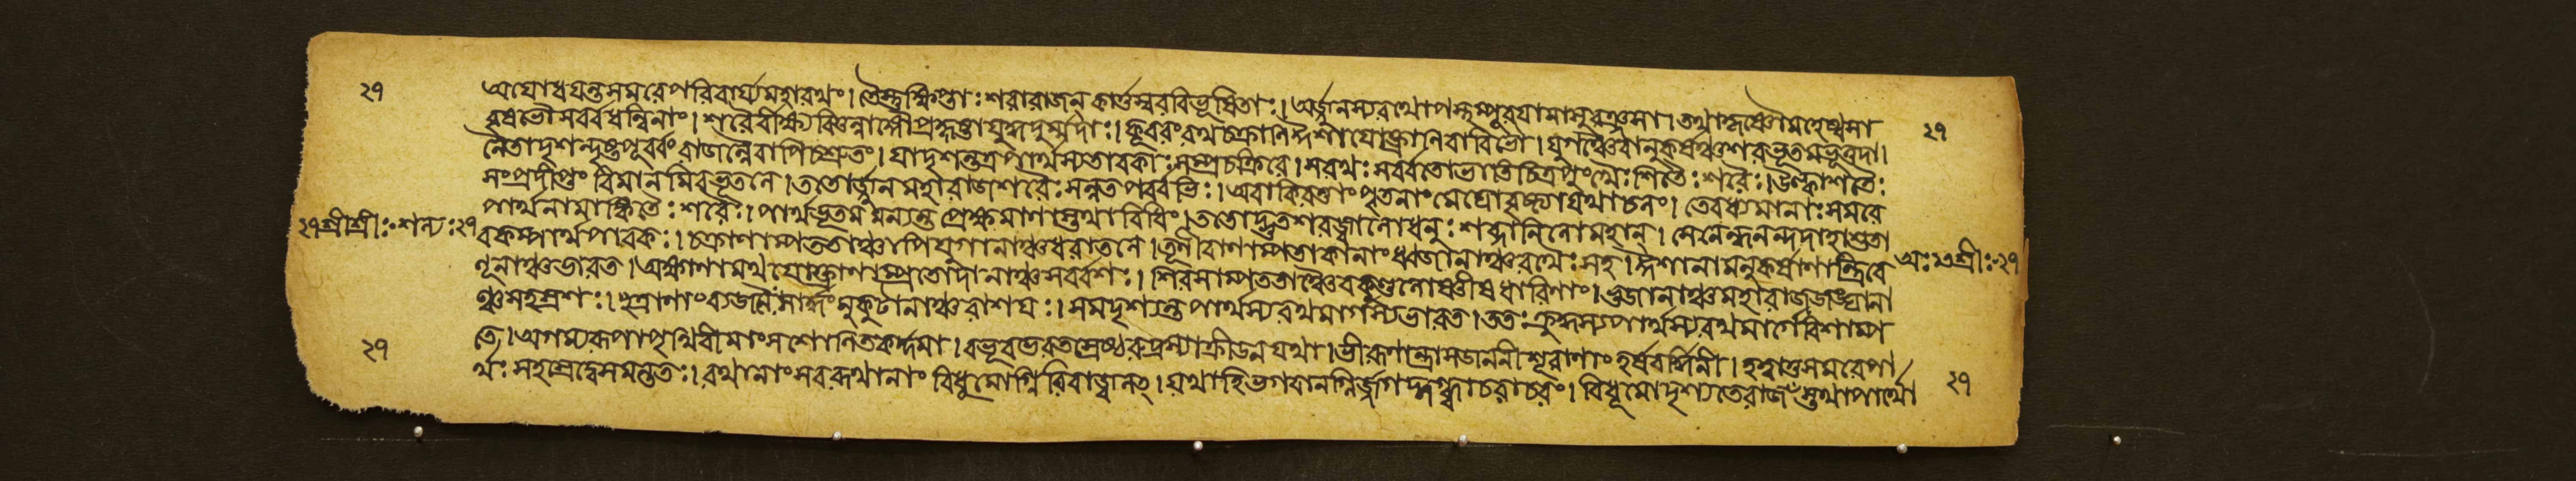 ২৭
অযোধযন্ত সমরে পরিবার্য্য মহারথং। তৈস্তু ক্ষিপ্তাঃ শরা রাজন কার্ত্তস্বরবিভূষিতাঃ। অর্জ্জুনস্য রথোপস্থম্পূরযামাসুরঞ্জসা। তথা কৃষ্ণৌ মহেষ্বাসা
বৃষভৌ সর্ব্বধন্বিনাং। শরৈর্বীক্ষ্য বিঞ্চন্নাঙ্গৌ প্রহৃষ্টা যুদ্ধদুর্ম্মদাঃ। কূবরং রথচক্রাণি ঈশা যোক্ত্রাণি বাবিভো। যুগঞ্চৈবানুকর্ষঞ্চ শরভূতমভূত্তদা।
২৭
নৈতাদৃশন্দৃষ্টপূর্ব্বং রাজন্নৈবাপি চ শ্রুতং। যাদৃশন্তত্র পার্থস্য তাবকাঃ সম্প্রচক্রিরে। স রথঃ সর্ব্বতো ভাতি চিত্রপুংখৈঃ শিতৈঃ শরৈঃ। উল্কাশতৈঃ
সংপ্রদীপ্তং বিমানমিব ভূতলে। ততোর্জ্জুন মহারাজ শরৈঃ সন্নতপর্ব্বভিঃ। অবাকিরত্তাং পৃতনাং মেঘো বৃষ্ট্যা যথাচলং। তে বধ্যমানাঃ সমরে
পার্থনামাঙ্কিতৈঃ শরৈঃ। পার্থভূতমমন্যন্ত প্রেক্ষমাণাস্তথাবিধিং। ততোদ্ভুতশরজ্বালো ধনুঃশব্দানিলো মহান্। সেনেন্ধনন্দদাহাশু তা
২৭ শ্রীশ্রীঃ শল্যঃ ২৭
বকম্পার্থপাবকঃ। চক্রাণাম্পততাঞ্চাপি যুগানাঞ্চ ধরাতলে। তূণীরাণাম্পতাকানাং ধ্বজানাঞ্চ রথৈঃ সহ। ঈশানামনুকর্ষাণান্ত্রিবে
ণূনাঞ্চ ভারত। অক্ষাণামথ যোক্ত্রাণাম্প্রতোদানাঞ্চ সর্ব্বশঃ। শিরসাম্পততাঞ্চৈব কুণ্ডলোষ্ণীষধারিণাং। ভুজানাঞ্চ মহারাজ স্কন্ধানা
অঃ শ্রীঃ ২৭
ঞ্চ সহস্রশঃ। ছত্রাণাং ব্যজনৈঃ সার্দ্ধং মুকুটানাঞ্চ রাশযঃ। সমদৃশ্যন্ত পার্থস্য রথমার্গস্য ভারত। ততঃ ক্রুদ্ধস্য পার্থস্য রথমার্গে বিশাম্প
তে। অগম্যরূপা পৃথিবী মাংসশোণিতকর্দ্দমা। বভূব ভরতশ্রেষ্ঠ রুদ্রস্যাক্রীডনং যথা। ভীরূণান্ত্রাসজননী শূরাণাং হর্ষবর্দ্ধিনী। হত্বা তু সমরে পা
২৭
র্থঃ সহস্রে দ্বে সমন্ততঃ। রথানাং সবরূথানাং বিধুমোগ্নিরিবাজ্বলৎ। যথা হি ভগবানগ্নির্জ্জগদ্দগ্ধ্বা চরাচরং। বিধূমো দৃশ্যতে রাজঁস্তথা পার্থো
২৭